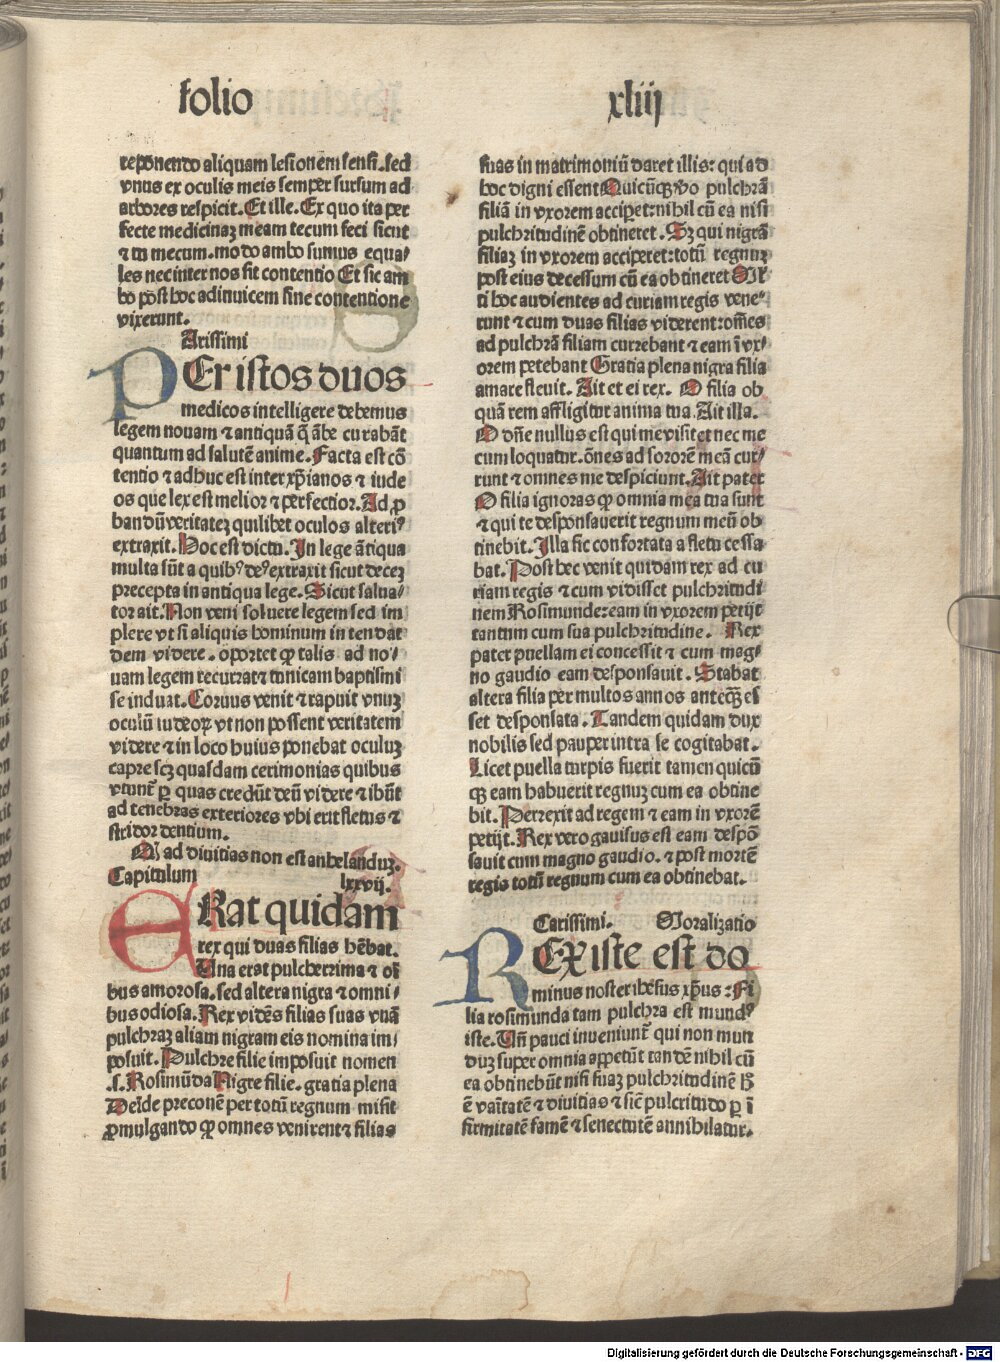 folio
xliiij
reponendo aliquam lesionem sensi. sed
vnus ex oculis meis semper sursum ad
arbores respicit. Et ille. Ex quo ita per
fecte medicinaꝫ meam tecum feci sicut
⁊ tu mecum. modo ambo sumus equa/
les nec inter nos sit contentio Et sic am
bo post hoc adinuicem sine contentione
vixerunt.
Arissimi
PEr istos duos
medicos intelligere debemus
legem nouam ⁊ antiquā q̄ ābe curabāt
quantum ad salutē anime. Facta est cō
tentio ⁊ adhuc est inter xp̄ianos ⁊ iude
os que lex est melior ⁊ perfectior. Ad ꝓ
bandū veritateꝫ quilibet oculos alteriꝰ
extraxit. Hoc est dictu. In lege ātiqua
multa sūt a quibꝰ deꝰ extraxit sicut deceꝫ
precepta in antiqua lege. Sicut salua/
tor ait. Non veni soluere legem sed im
plere vt si aliquis hominum intendat
deum videre. oportet ꝙ talis ad no/
uam legem recurrat ⁊ tunicam baptismi
se induat. Coruus venit ⁊ rapuit vnuꝫ
oculū iudeoꝝ vt non possent veritatem
videre ⁊ in loco huius ponebat oculuꝫ
capre scꝫ quasdam cerimonias quibus
vtunt̄ ꝑ quas credūt deū videre ⁊ ibūt
ad tenebras exteriores vbi erit fletus ⁊
stridor dentium.
Q ad diuitias non est anhelanduꝫ.
Capitulum lxxvij.
ERat quidam
rex qui duas filias hēbat.
Una erat pulcherrima ⁊ oī
bus amorosa. sed altera nigra ⁊ omni/
bus odiosa. Rex vidēs filias suas vnā
pulchraꝫ aliam nigram eis nomina im/
posuit. Pulchre filie imposuit nomen
.s. Rosimūda Nigre filie. gratia plena
Deīde preconē per totū regnum misit
ꝓmulgando ꝙ omnes venirent ⁊ filias
suas in matrimoniū daret illis: qui ad
hoc digni essent Quicūqꝫ vo pulchrā
filiā in vxorem acciꝑet: nihil cū ea nisi
pulchritudinē obtineret. Sꝫ qui nigrā
filiaꝫ in vxorem acciperet: totū regnuꝫ
post eius decessum cū ea obtineret Ml̄
ti hoc audientes ad curiam regis vene/
runt ⁊ cum duas filias viderent: om̄es
ad pulchrā filiam currebant ⁊ eam ī vx/
orem petebant Gratia plena nigra filia
amare fleuit. Ait et ei rex. O filia ob
quā rem affligitur anima tua. Ait illa.
O dn̄e nullus est qui me visitet nec me
cum loquatur. ōnes ad sororē meā cur/
runt ⁊ omnes me despiciunt. Ait pater
O filia ignoras ꝙ omnia mea tua sunt
⁊ qui te desponsauerit regnum meū ob
tinebit. Illa sic confortata a fletu cessa
bat. Post hec venit quidam rex ad cu
riam regis ⁊ cum vidisset pulchritudi
nem Rosimunde: eam in vxorem petijt
tantum cum sua pulchritudine. Rex
pater puellam ei concessit ⁊ cum mag/
no gaudio eam desponsauit. Stabat
altera filia per multos annos anteqꝫ es
set desponsata. Tandem quidam dux
nobilis sed pauper intra se cogitabat.
Licet puella turpis fuerit tamen quicū
qꝫ eam habuerit regnuꝫ cum ea obtine
bit. Perrexit ad regem ⁊ eam in vxorē
petijt. Rex vero gauisus est eam despō
sauit cum magno gaudio. ⁊ post mortē
regis totū regnum cum ea obtinebat.
Carissimi. Moralizatio
REX iste est do
minus noster ihesus xp̄us: Fi
lia rosimunda tam pulchra est mundꝰ
iste. Un̄ pauci inveniunt̄ qui non mun
duꝫ super omnia appetūt tandē nihil cū
ea obtinebūt nisi suaꝫ pulchritudinē h̄
ē vaītatē ⁊ diuitias ⁊ siē pulcritudo ꝑ ī
firmitatē famē ⁊ senectutē annihilatur.
Digitalisierung gefördert durch die Deutsche Forschungsgemeinschaft - DFG